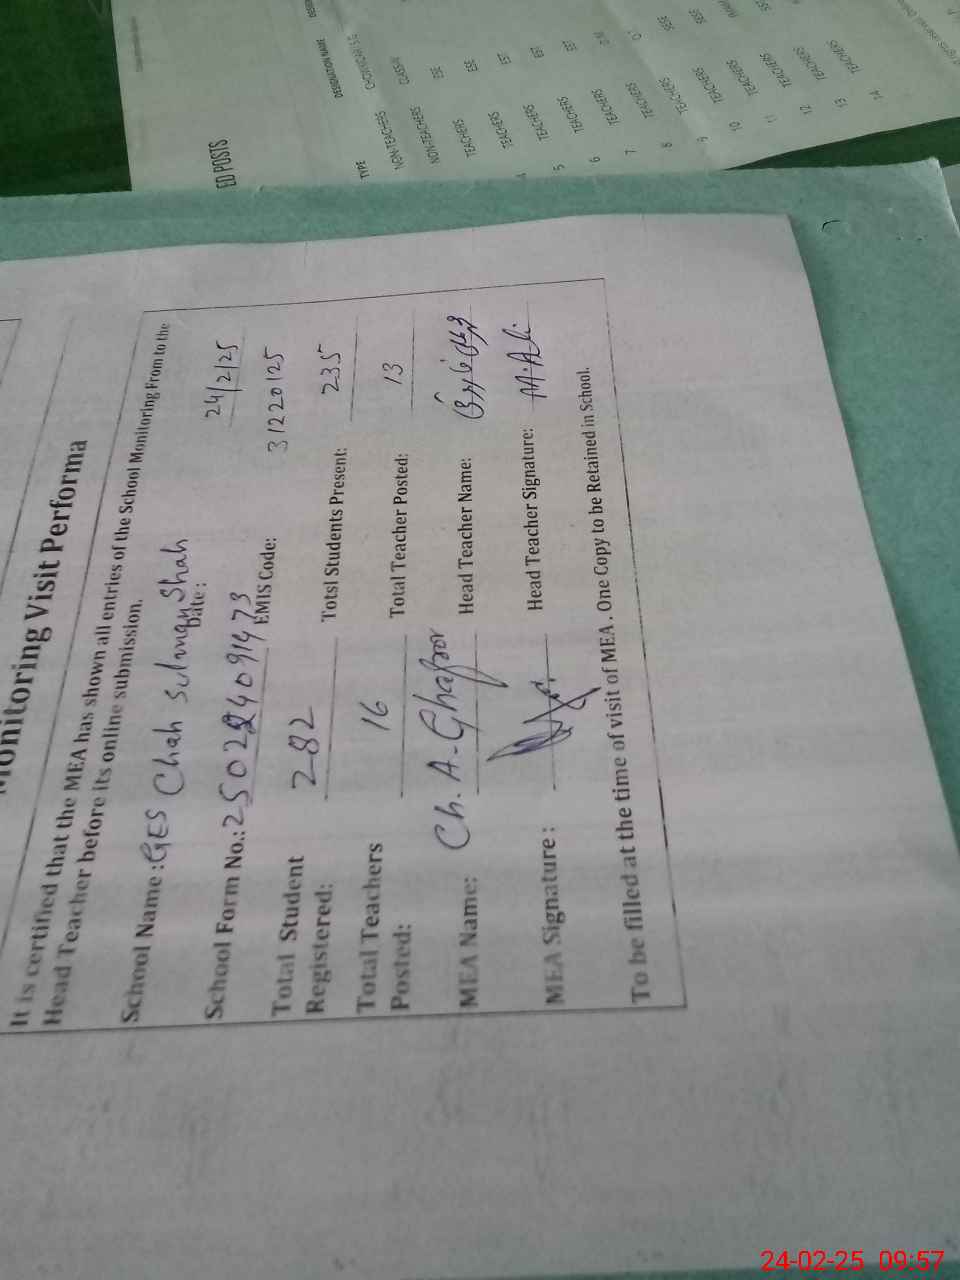 Monitoring Visit Performa
It is certified that the MEA has shown all entries of the School Monitoring From to the
Head Teacher before its online submission.
School Name : GES Chah Sulman Shah Date : 24/2/25
School Form No.: 250224091473 EMIS Code: 31220125
Total Student Registered: 282 Totsl Students Present: 235
Total Teachers Posted: 16 Total Teacher Posted: 13
MEA Name: Ch. A. Ghafoor Head Teacher Name:
MEA Signature : Head Teacher Signature: M.Ali
To be filled at the time of visit of MEA . One Copy to be Retained in School.
ED POSTS
TYPE DESIGNATION NAME
NON-TEACHERS
NON-TEACHERS
TEACHERS ESE
TEACHERS EST
5 TEACHERS EST
6 TEACHERS EST
7 TEACHERS
8 TEACHERS
9 TEACHERS SESE
10 TEACHERS SESE
11 TEACHERS
12 TEACHERS
13 TEACHERS
14 TEACHERS
24-02-25 09:57